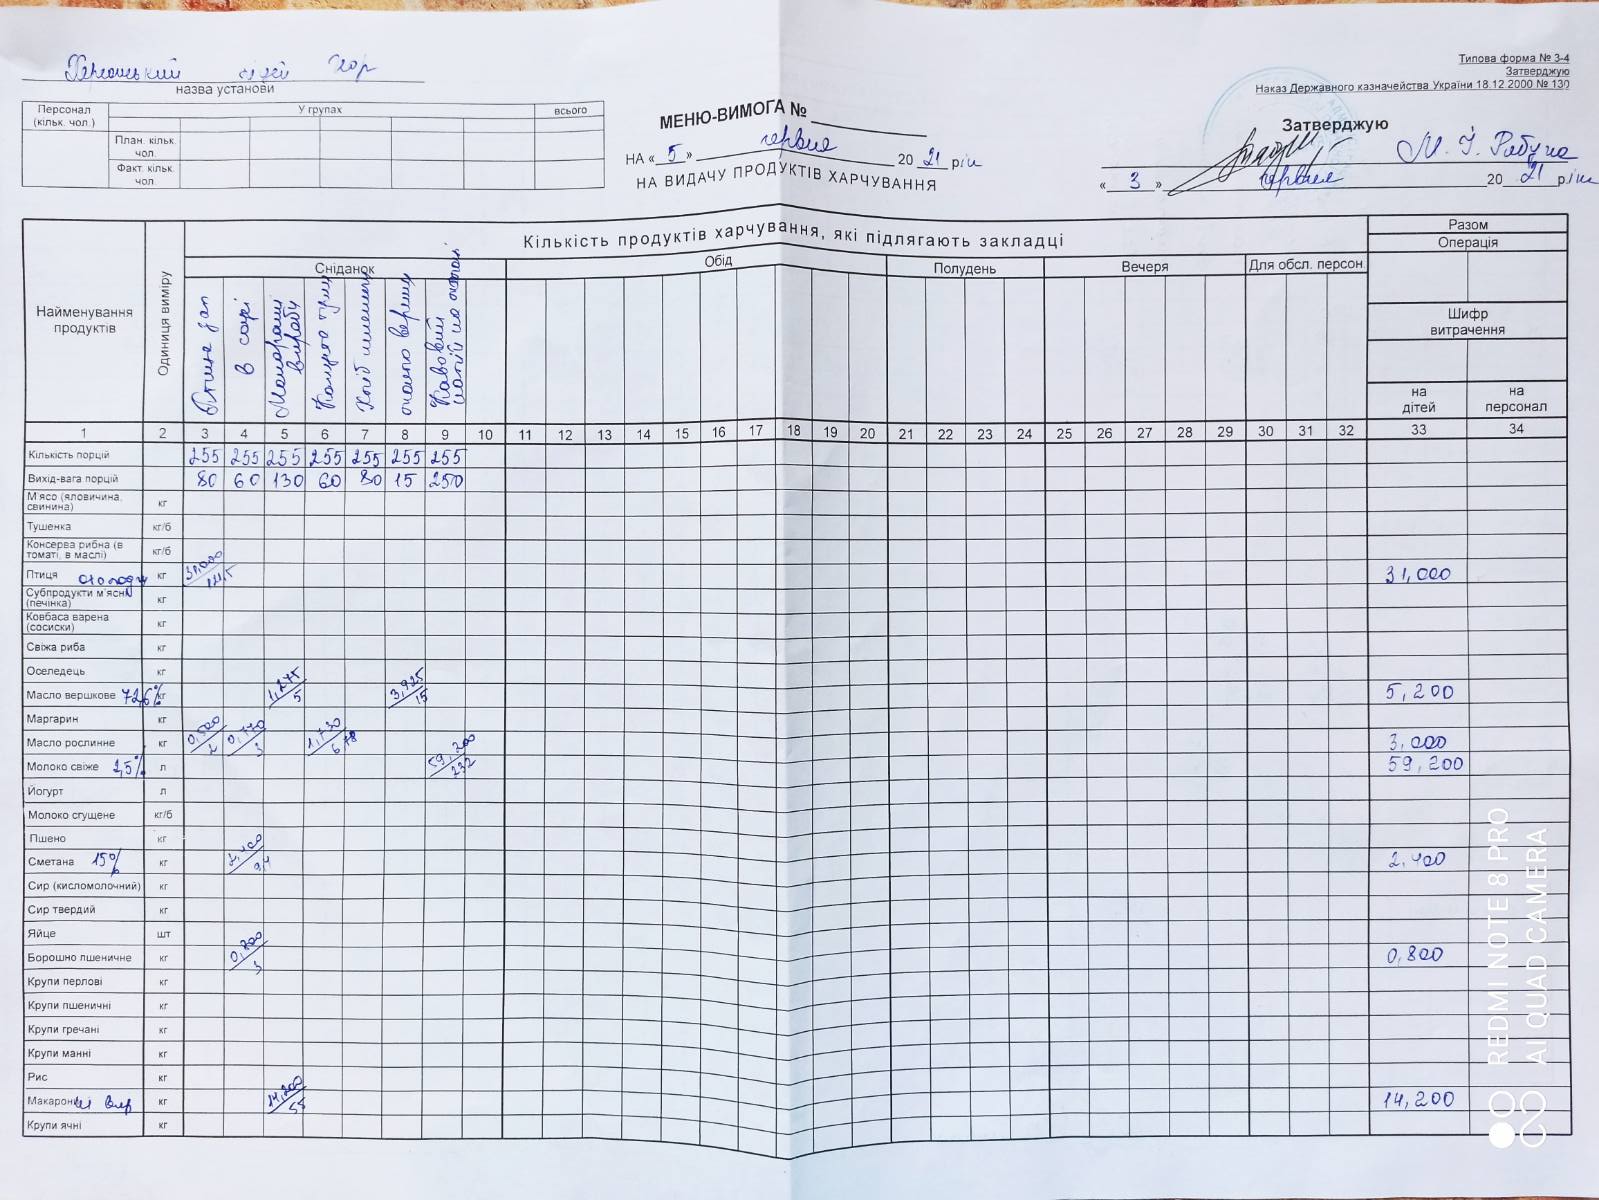 Херсонський ліцей
назва установи
Типова форма № 3-4
Затверджую
Наказ Державного казначейства України 18.12.2000 № 130
Персонал (кільк. чол.) У групах всього
План. кільк. чол.
Факт. кільк. чол.
МЕНЮ-ВИМОГА №
НА « 5 » червня 20 21 рік
НА ВИДАЧУ ПРОДУКТІВ ХАРЧУВАННЯ
Затверджую
М. І. Рябуха
« 3 » червня 20 21 рік
Найменування продуктів Одиниця виміру Кількість продуктів харчування, які підлягають закладці Разом
Операція
Сніданок Обід Полудень Вечеря Для обсл. персон.
Птиця зап в соусі Макаронні вироби Хліб пшеничн масло вершк Кавовий напій на молоці
Шифр витрачення
на дітей на персонал
1 2 3 4 5 6 7 8 9 10 11 12 13 14 15 16 17 18 19 20 21 22 23 24 25 26 27 28 29 30 31 32 33 34
Кількість порцій 255 255 255 255 255 255 255
Вихід-вага порцій 80 60 130 60 30 15 250
М'ясо (яловичина, свинина) кг
Тушенка кг/б
Консерва рибна (в томаті, в маслі) кг/б
Птиця кг 31,000 31,000
Субпродукти м'ясні (печінка) кг
Ковбаса варена (сосиски) кг
Свіжа риба кг
Оселедець кг
Масло вершкове 72,6% кг 1,275/5 3,925/15 5,200
Маргарин кг
Масло рослинне кг 0,500/2 0,770/3 1,730/6,78 3,000
Молоко свіже 2,5% л 59,200/232 59,200
Йогурт л
Молоко сгущене кг/б
Пшено кг
Сметана 15% кг 2,400/9,4 2,400
Сир (кисломолочний) кг
Сир твердий кг
Яйце шт
Борошно пшеничне кг 0,800/3 0,800
Крупи перлові кг
Крупи пшеничні кг
Крупи гречані кг
Крупи манні кг
Рис кг
Макаронні вир кг 14,200/55 14,200
Крупи ячні кг
REDMI NOTE 8 PRO
AI QUAD CAMERA